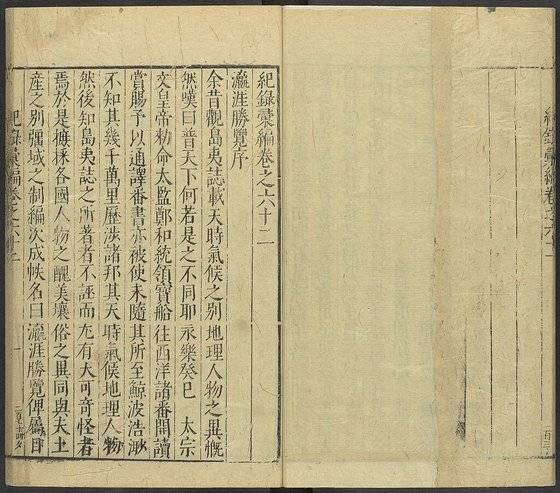 紀錄彙編卷之六十二
瀛涯勝覽序
余昔觀島夷誌載天時氣候之別地理人物之異慨
然嘆曰普天下何若是之不同耶永樂癸巳　太宗
文皇帝勑命太監鄭和統領寶船往西洋諸番開讀
賞賜予以通譯番書亦被使末隨其所至鯨波浩渺
不知其幾千萬里歷涉諸邦其天時氣候地理人物
然後知島夷誌之所著者不誣而尤有大可奇怪者
焉於是摭採各國人物之醜美壤俗之異同與夫土
產之別疆域之制編次成帙名曰瀛涯勝覽俾屬目
紀錄彙編卷之六十二　一